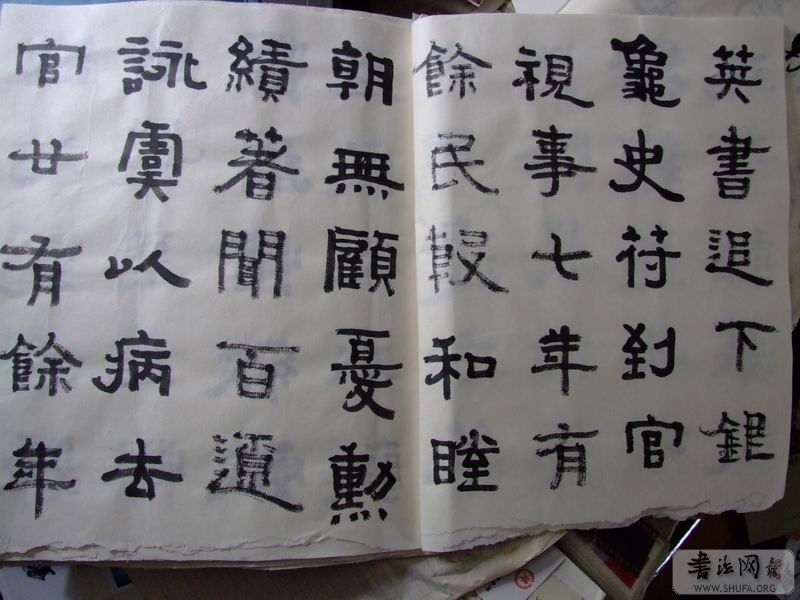 英書追下銀
龜史符到官
視事七年有
餘民殷和睦
朝無顧憂勳
績著聞百遼
詠虞以病去
官廿有餘年
书法网
WWW.SHUFA.ORG